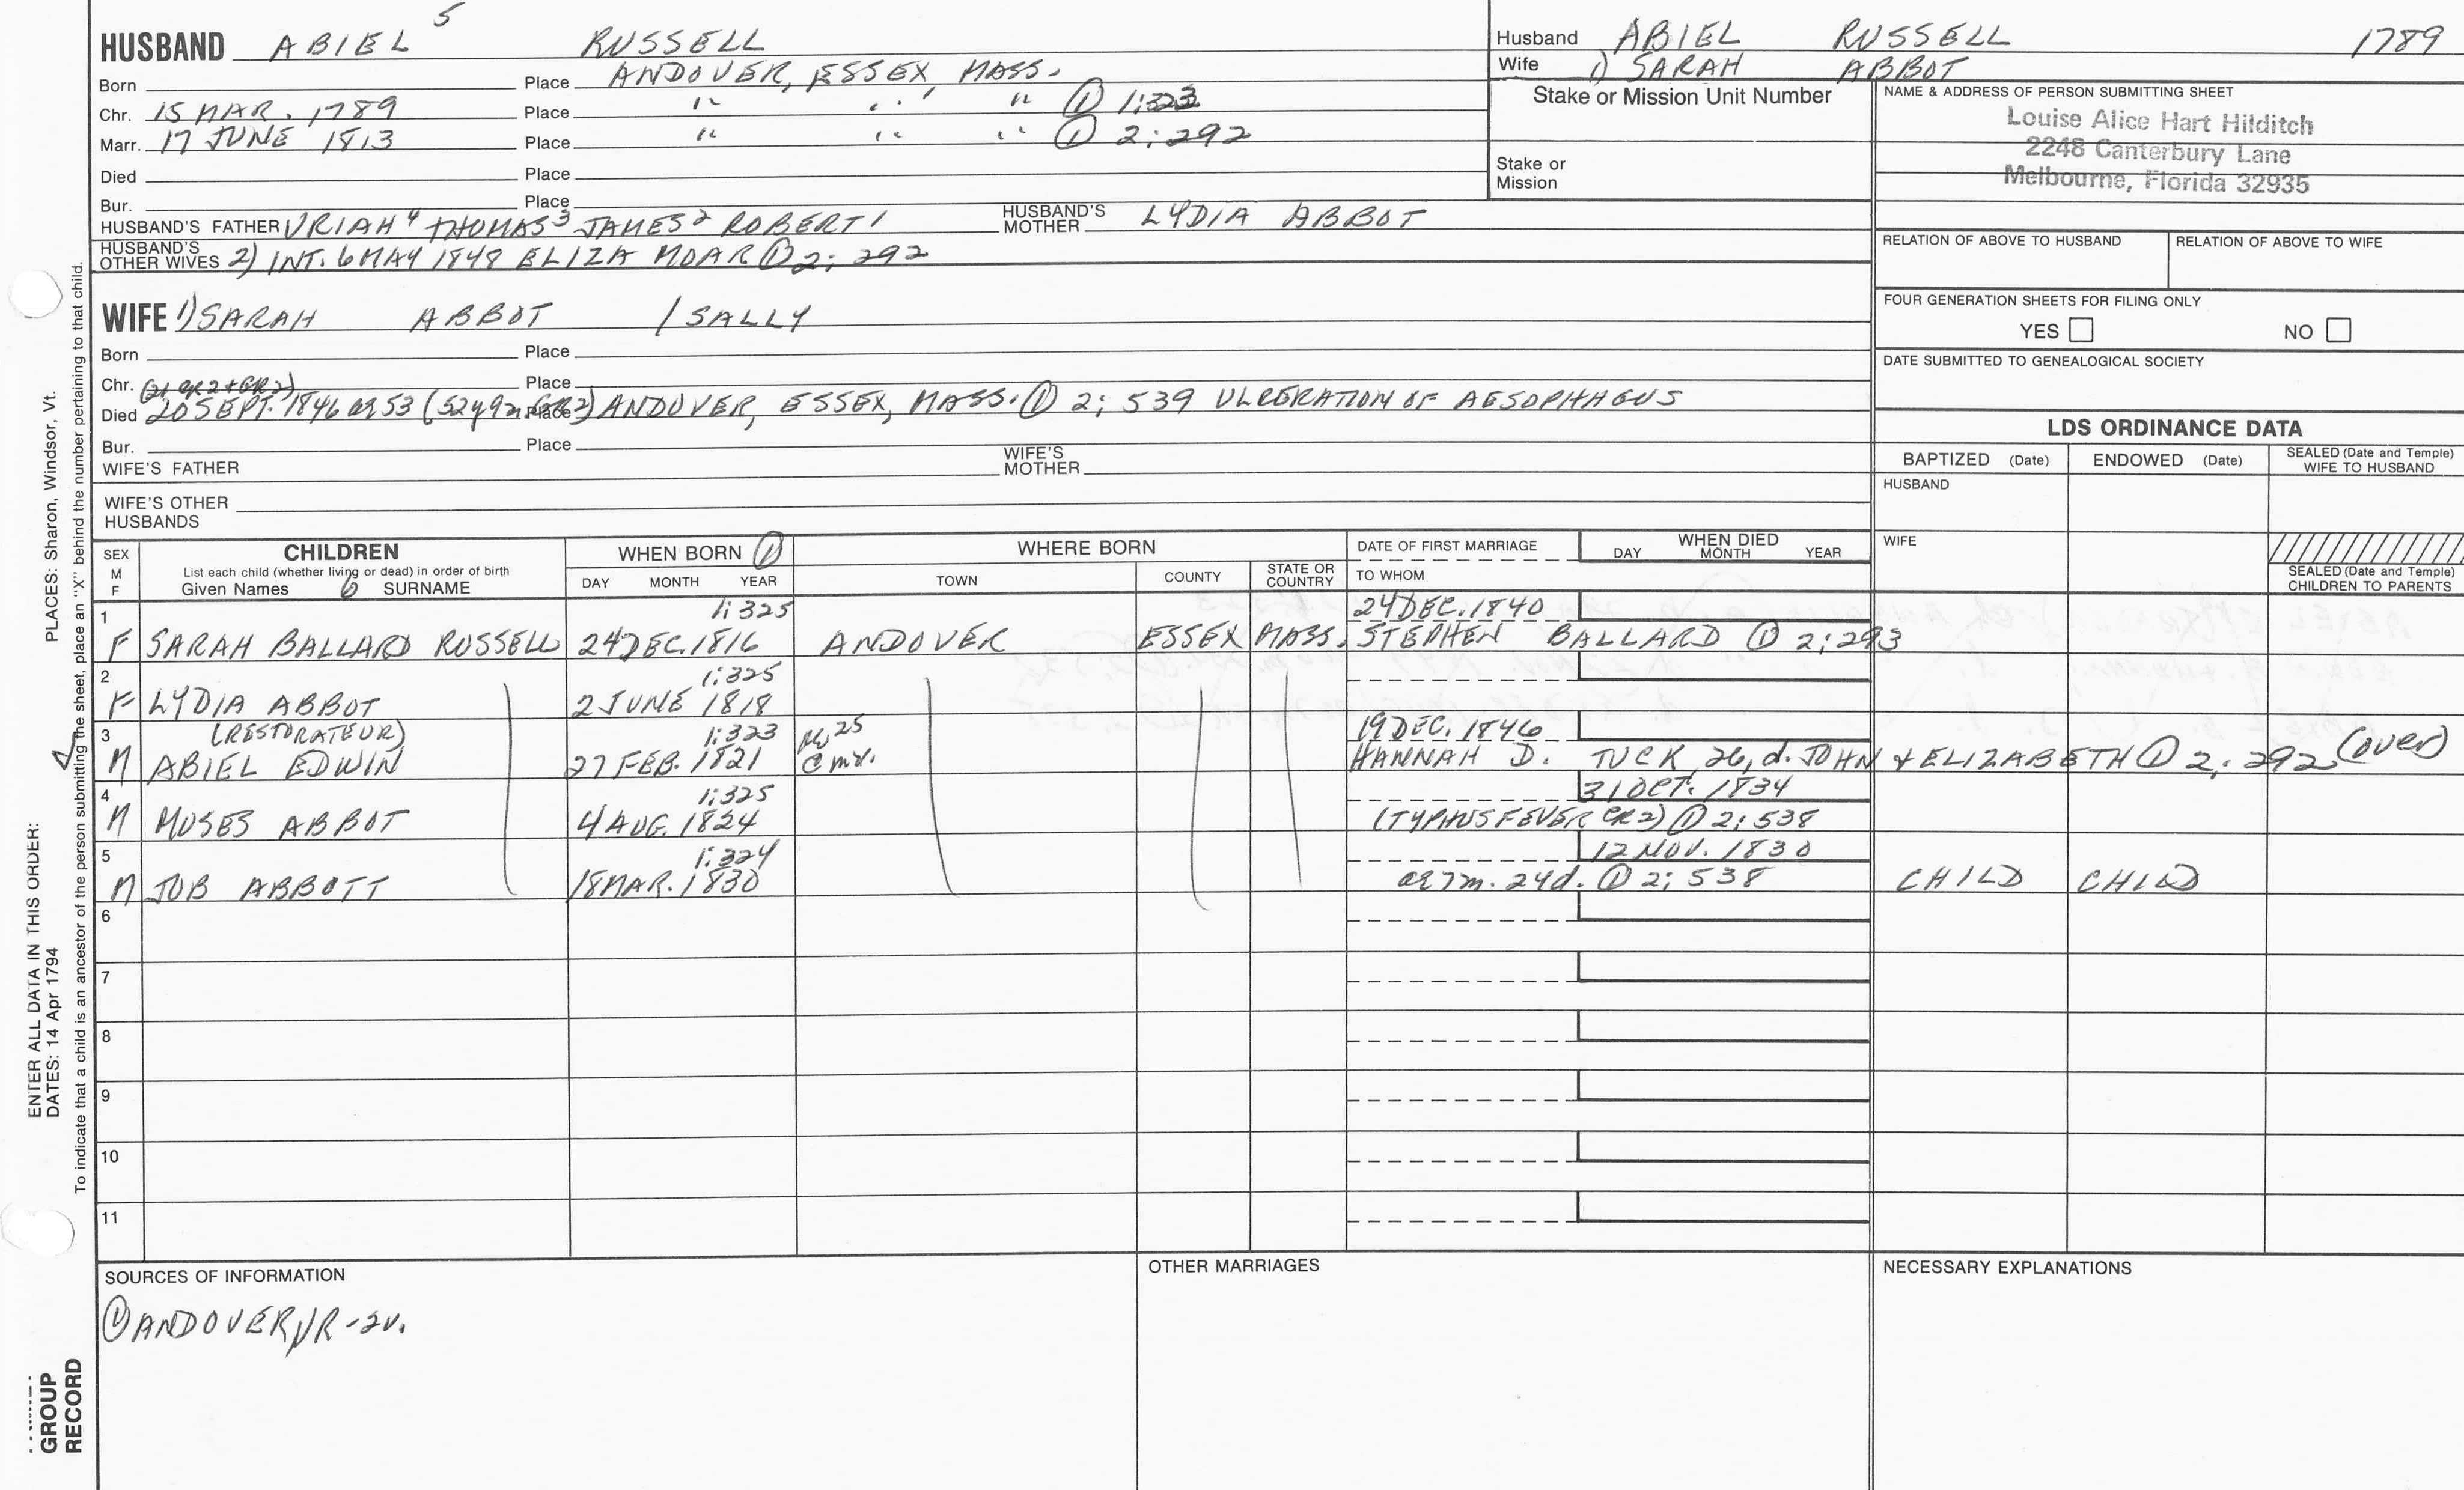 5
HUSBAND ABIEL RUSSELL
Born Place ANDOVER, ESSEX, MASS.
Chr. 15 MAR. 1789 Place " " " ① 1:323
Marr. 17 JUNE 1813 Place " " " ① 2:292
Died Place
Bur. Place
HUSBAND'S FATHER URIAH4 THOMAS3 JAMES2 ROBERT1 HUSBAND'S MOTHER LYDIA ABBOT
HUSBAND'S OTHER WIVES 2) INT. 6 MAY 1848 ELIZA MOAR ① 2: 292
WIFE 1) SARAH ABBOT / SALLY
Born Place
Chr. Place
Died 20 SEPT. 1846 ae 53 (52y 9m Place ) ANDOVER, ESSEX, MASS. ① 2: 539 ULCERATION OF AESOPHAGUS
Bur. Place
WIFE'S FATHER WIFE'S MOTHER
WIFE'S OTHER HUSBANDS
Husband ABIEL RUSSELL 1789
Wife 1) SARAH ABBOT
Stake or Mission Unit Number
Stake or
Mission
NAME & ADDRESS OF PERSON SUBMITTING SHEET
Louise Alice Hart Hilditch
2248 Canterbury Lane
Melbourne, Florida 32935
RELATION OF ABOVE TO HUSBAND RELATION OF ABOVE TO WIFE
FOUR GENERATION SHEETS FOR FILING ONLY
YES NO
DATE SUBMITTED TO GENEALOGICAL SOCIETY
LDS ORDINANCE DATA
BAPTIZED (Date) ENDOWED (Date) SEALED (Date and Temple) WIFE TO HUSBAND
HUSBAND
WIFE
SEALED (Date and Temple) CHILDREN TO PARENTS
SEX
M
F
CHILDREN
List each child (whether living or dead) in order of birth
Given Names 6 SURNAME
WHEN BORN ①
DAY MONTH YEAR
WHERE BORN
TOWN COUNTY STATE OR COUNTRY
DATE OF FIRST MARRIAGE
TO WHOM
WHEN DIED
DAY MONTH YEAR
1 1:325 24 DEC. 1840
F SARAH BALLARD RUSSELL 24 DEC. 1816 ANDOVER ESSEX MASS. STEPHEN BALLARD ① 2:293
2 1:325
F LYDIA ABBOT 2 JUNE 1818
3 (RESTORATEUR) 1:323 25 19 DEC. 1846
M ABIEL EDWIN 27 FEB. 1821 @ mr. HANNAH D. TUCK, 26, d. JOHN + ELIZABETH ① 2: 292 (over)
4 1:325 31 OCT. 1834
M MOSES ABBOT 4 AUG. 1824 (TYPHUS FEVER CR2) ① 2: 538
5 1:324 12 NOV. 1830
M JOB ABBOTT 18 MAR. 1830 ae 7m. 24d. ① 2: 538 CHILD CHILD
6
7
8
9
10
11
SOURCES OF INFORMATION
① ANDOVER VR-2v.
OTHER MARRIAGES
NECESSARY EXPLANATIONS
PLACES: Sharon, Windsor, Vt.
ENTER ALL DATA IN THIS ORDER:
DATES: 14 Apr 1794
To indicate that a child is an ancestor of the person submitting the sheet, place an "X" behind the number pertaining to that child.
GROUP
RECORD